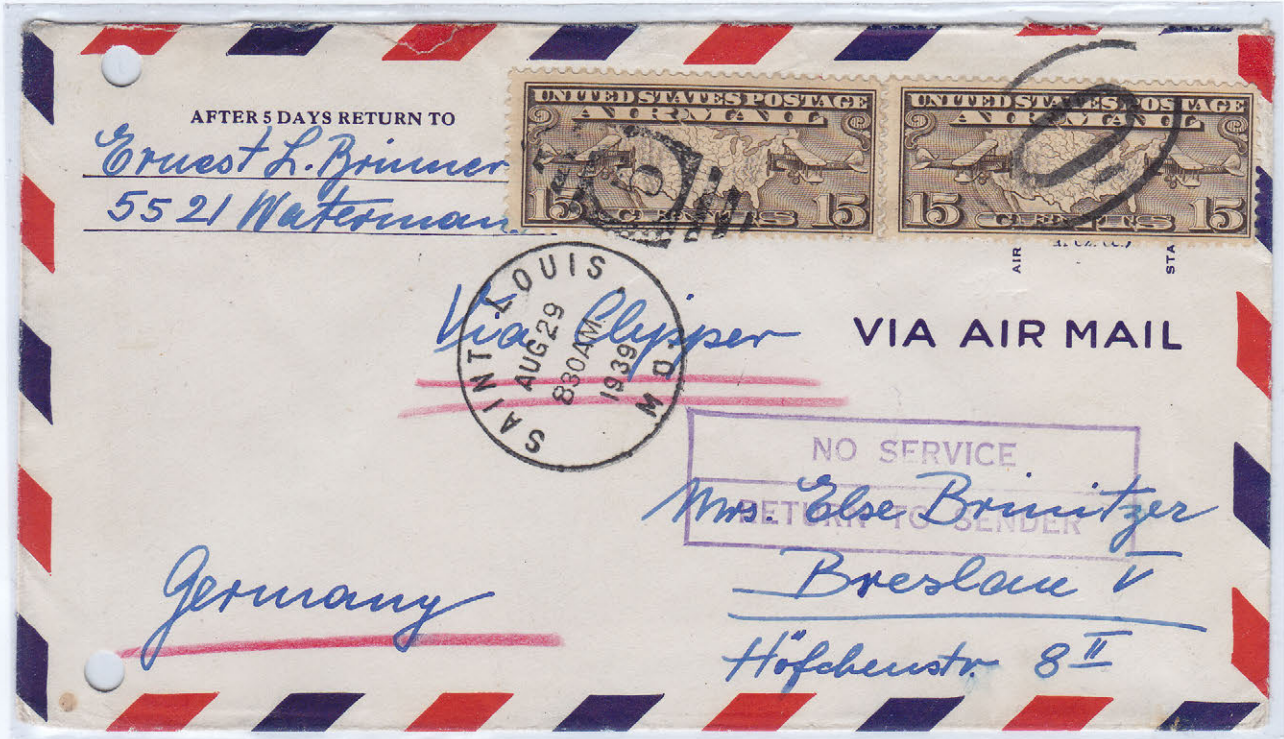 AFTER 5 DAYS RETURN TO
Ernest L. Brinner
5521 Waterman
UNITED STATES POSTAGE
AIR MAIL
15 CENTS 15
UNITED STATES POSTAGE
AIR MAIL
15 CENTS 15
AIR
STA
SAINT LOUIS, MO.
AUG 29
830 AM
1939
Via Clipper
VIA AIR MAIL
NO SERVICE
RETURN TO SENDER
Mrs. Else Brinitzer
Breslau V
Höfchenstr. 8 II
Germany